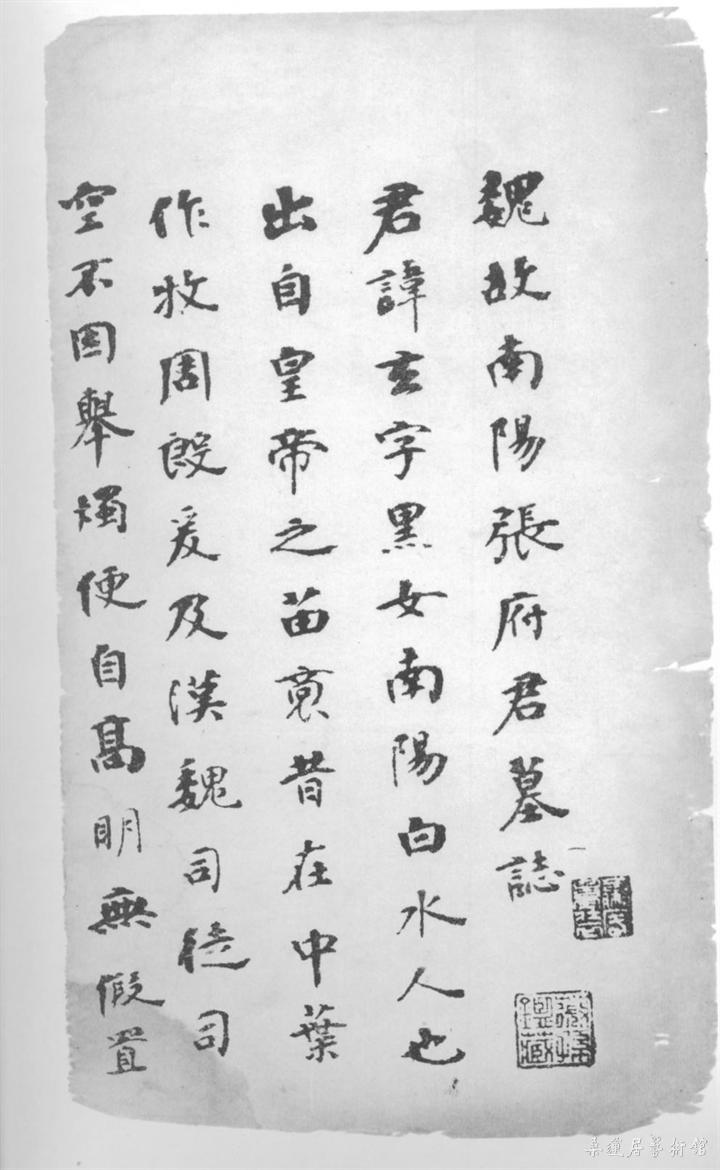 魏故南陽張府君墓誌
君諱玄字黑女南陽白水人也
出自皇帝之苗裔昔在中葉
作牧周殷爰及漢魏司徒司
空不因舉燭便自高明無假置
桑蓮居藝術館